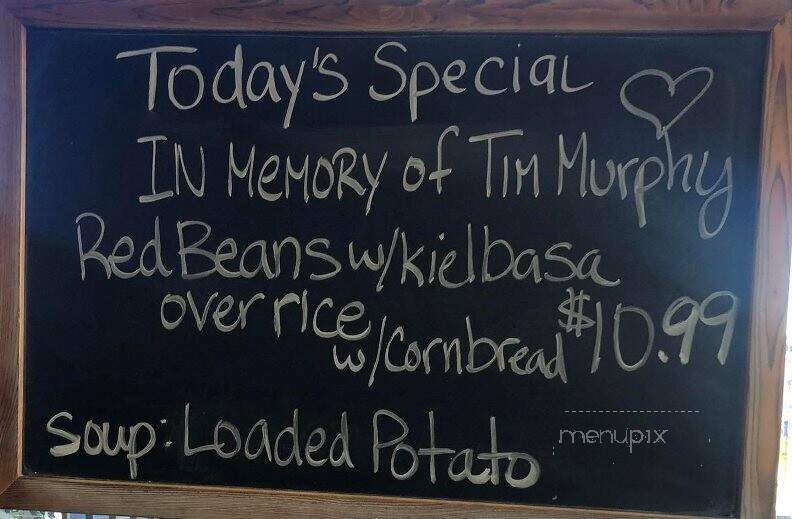 Today's Special
IN MEMORY of TIM Murphy
Red Beans w/kielbasa
over rice
w/Cornbread $10.99
Soup: Loaded Potato
menupix